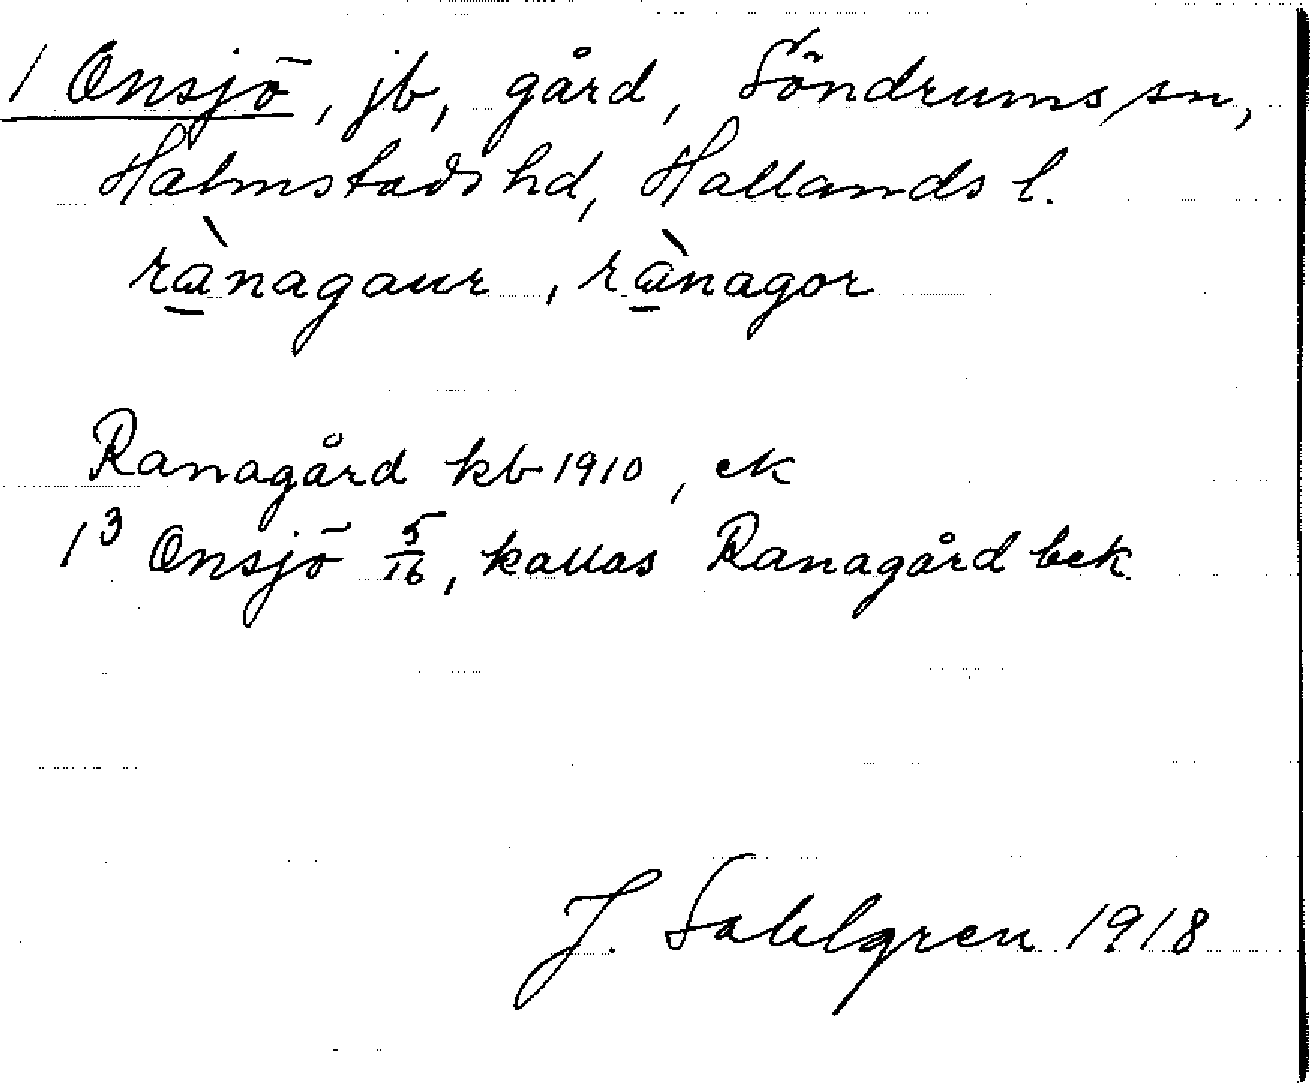 1 Onsjö, jb, gård, Söndrums sn,
Halmstads hd, Hallands l.
rànagaur, rànagor
Ranagård kb 1910, ek
1³ Onsjö 5/16, kallas Ranagård bek
J. Sahlgren 1918